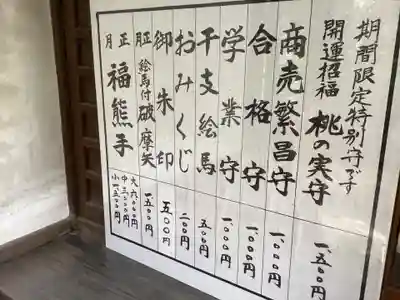 期間限定特別守です
開運招福 桃の実守 一、五〇〇円
商売繁昌守 一、〇〇〇円
合格守 一、〇〇〇円
学業守 一、〇〇〇円
干支絵馬 五〇〇円
おみくじ 二〇〇円
御朱印 五〇〇円
正月 絵馬付破摩矢 一、五〇〇円
正月 福熊手 大 六、〇〇〇円
中 三、〇〇〇円
小 一、五〇〇円